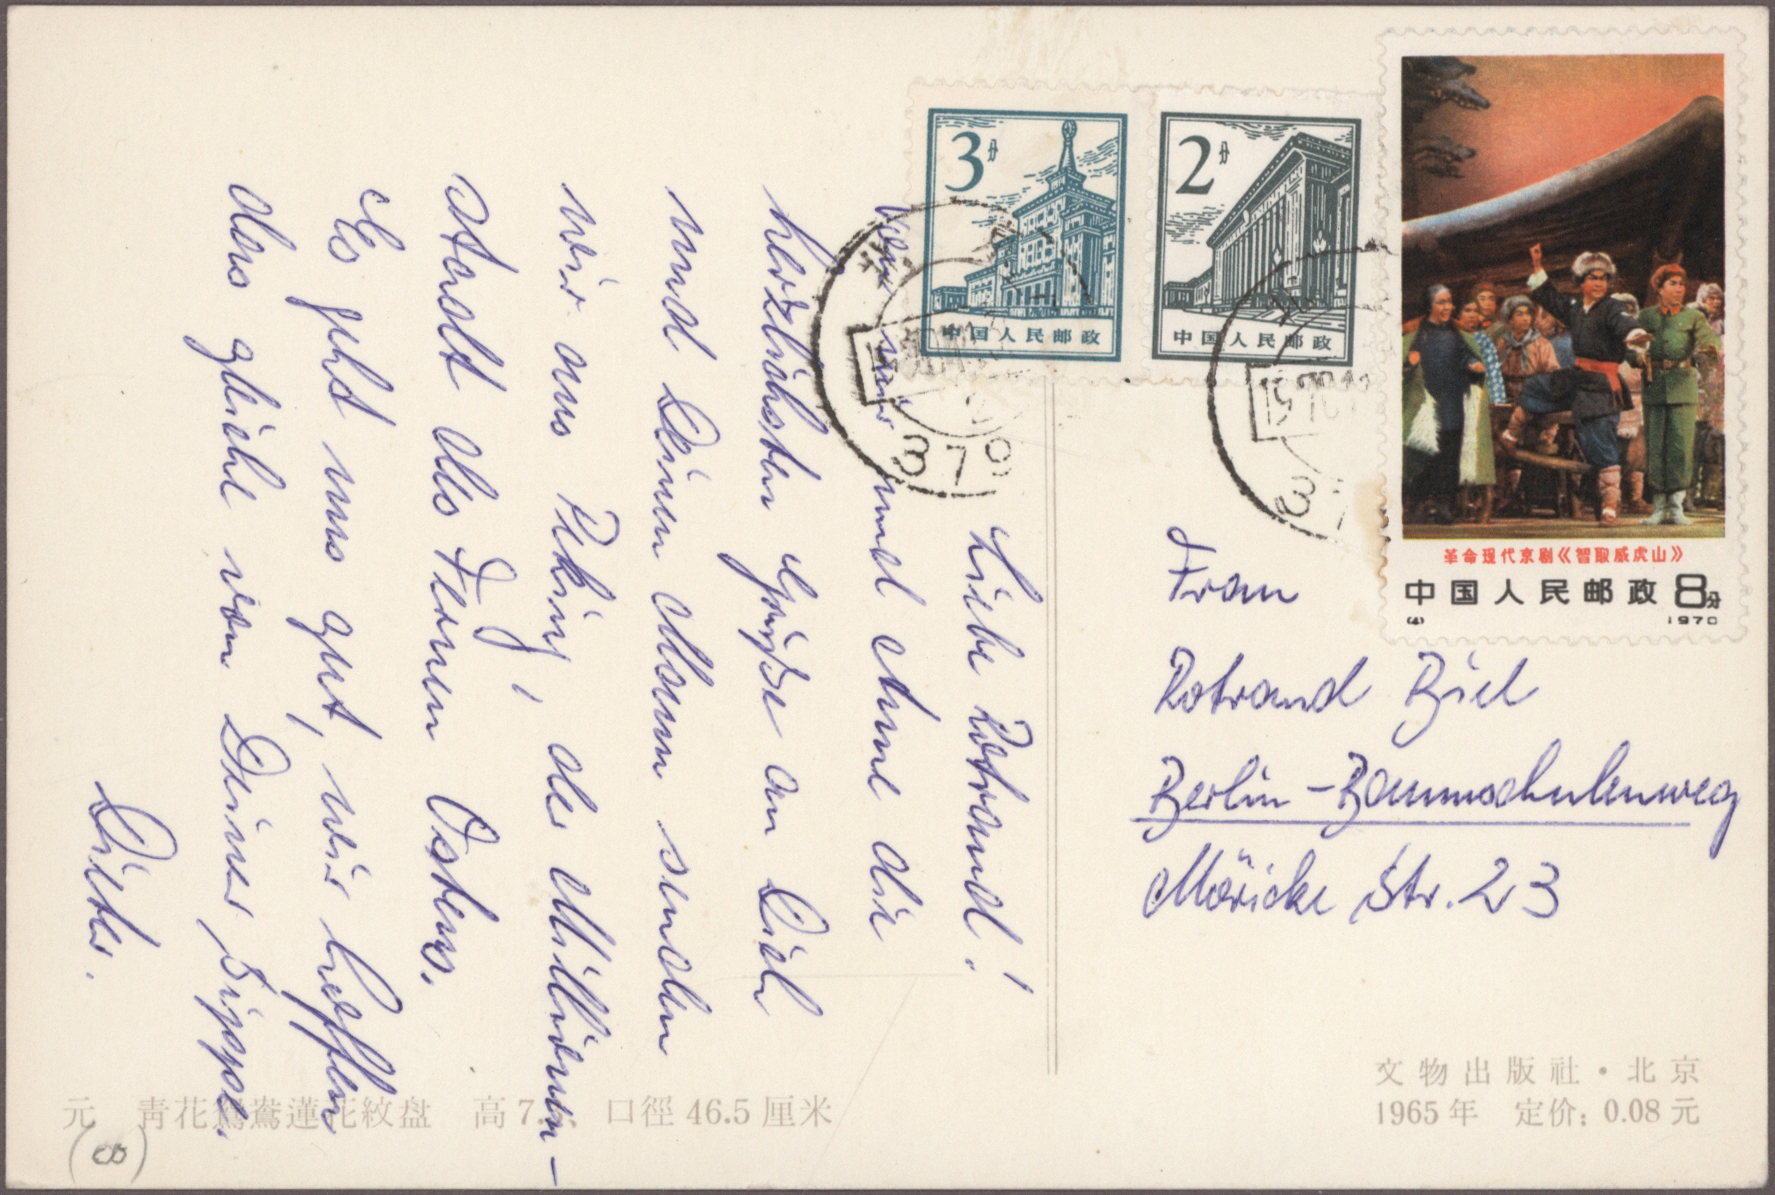 3分
中国人民邮政
2分
中国人民邮政
革命现代京剧《智取威虎山》
中国人民邮政 8分
(4) 1970
Liebe Rotraud!
Von uns und Anne die
herzlichsten Grüße an Dich
und Deinen Mann senden
wir aus Peking, der Millionen-
stadt des Fernen Ostens.
Es geht uns gut, wir hoffen
das gleiche von Deiner Sippe.
Dieter.
Frau
Rotraud Biel
Berlin-Baumschulenweg
Möricke Str. 23
元 青花鴛鴦蓮花紋盘 高7. 口徑46.5厘米
文物出版社·北京
1965年 定价: 0.08元